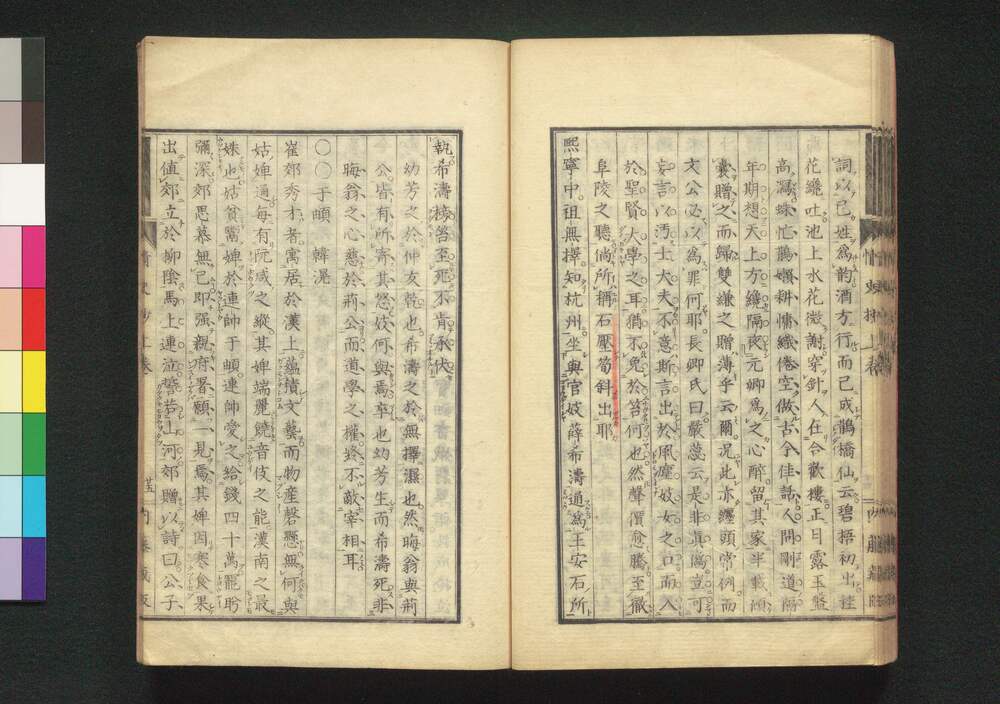 詞以己姓爲韵酒方行而已成鵲橋仙云碧梧初出桂
花纔吐池上水花微謝穿針人在合歡樓正月露玉盤
高瀉蛛忙鵲嬾耕慵織倦空做古今佳話人間剛道隔
年期想天上方纔隔夜元卿爲之心醉留其家半載傾
囊贈之而歸雙縑之贈薄乎云爾況此亦纏頭常例而
文公必以爲罪何耶長卿氏曰嚴蕊云是非眞僞豈可
妄言以汚士大夫不意斯言出於風塵妓女之口而入
於聖賢大學之耳猶不免於笞何也然聲價愈騰至徹
阜陵之聽倘所稱石壓筍斜出耶
熙寧中祖無擇知杭州坐與官妓薛希濤通爲王安石所
執希濤榜笞至死不肯承伏
幼芳之於仲友乾也希濤之於無擇濕也然晦翁與荊
公皆有所寄其怒妓何與焉卒也幼芳生而希濤死非
晦翁之心慈於荊公而道學之權終不敵宰相耳
〇〇于頔 韓滉
崔郊秀才者寓居於漢上蘊積文藝而物產罄懸無何與
姑婢通每有阮咸之縱其婢端麗饒音伎之能漢南之最
姝也姑貧鬻婢於連帥于頔連帥愛之給錢四十萬寵盻
彌深郊思慕無已即强親府署願一見焉其婢因寒食果
出値郊立於柳陰馬上連泣誓若山河郊贈以詩曰公子